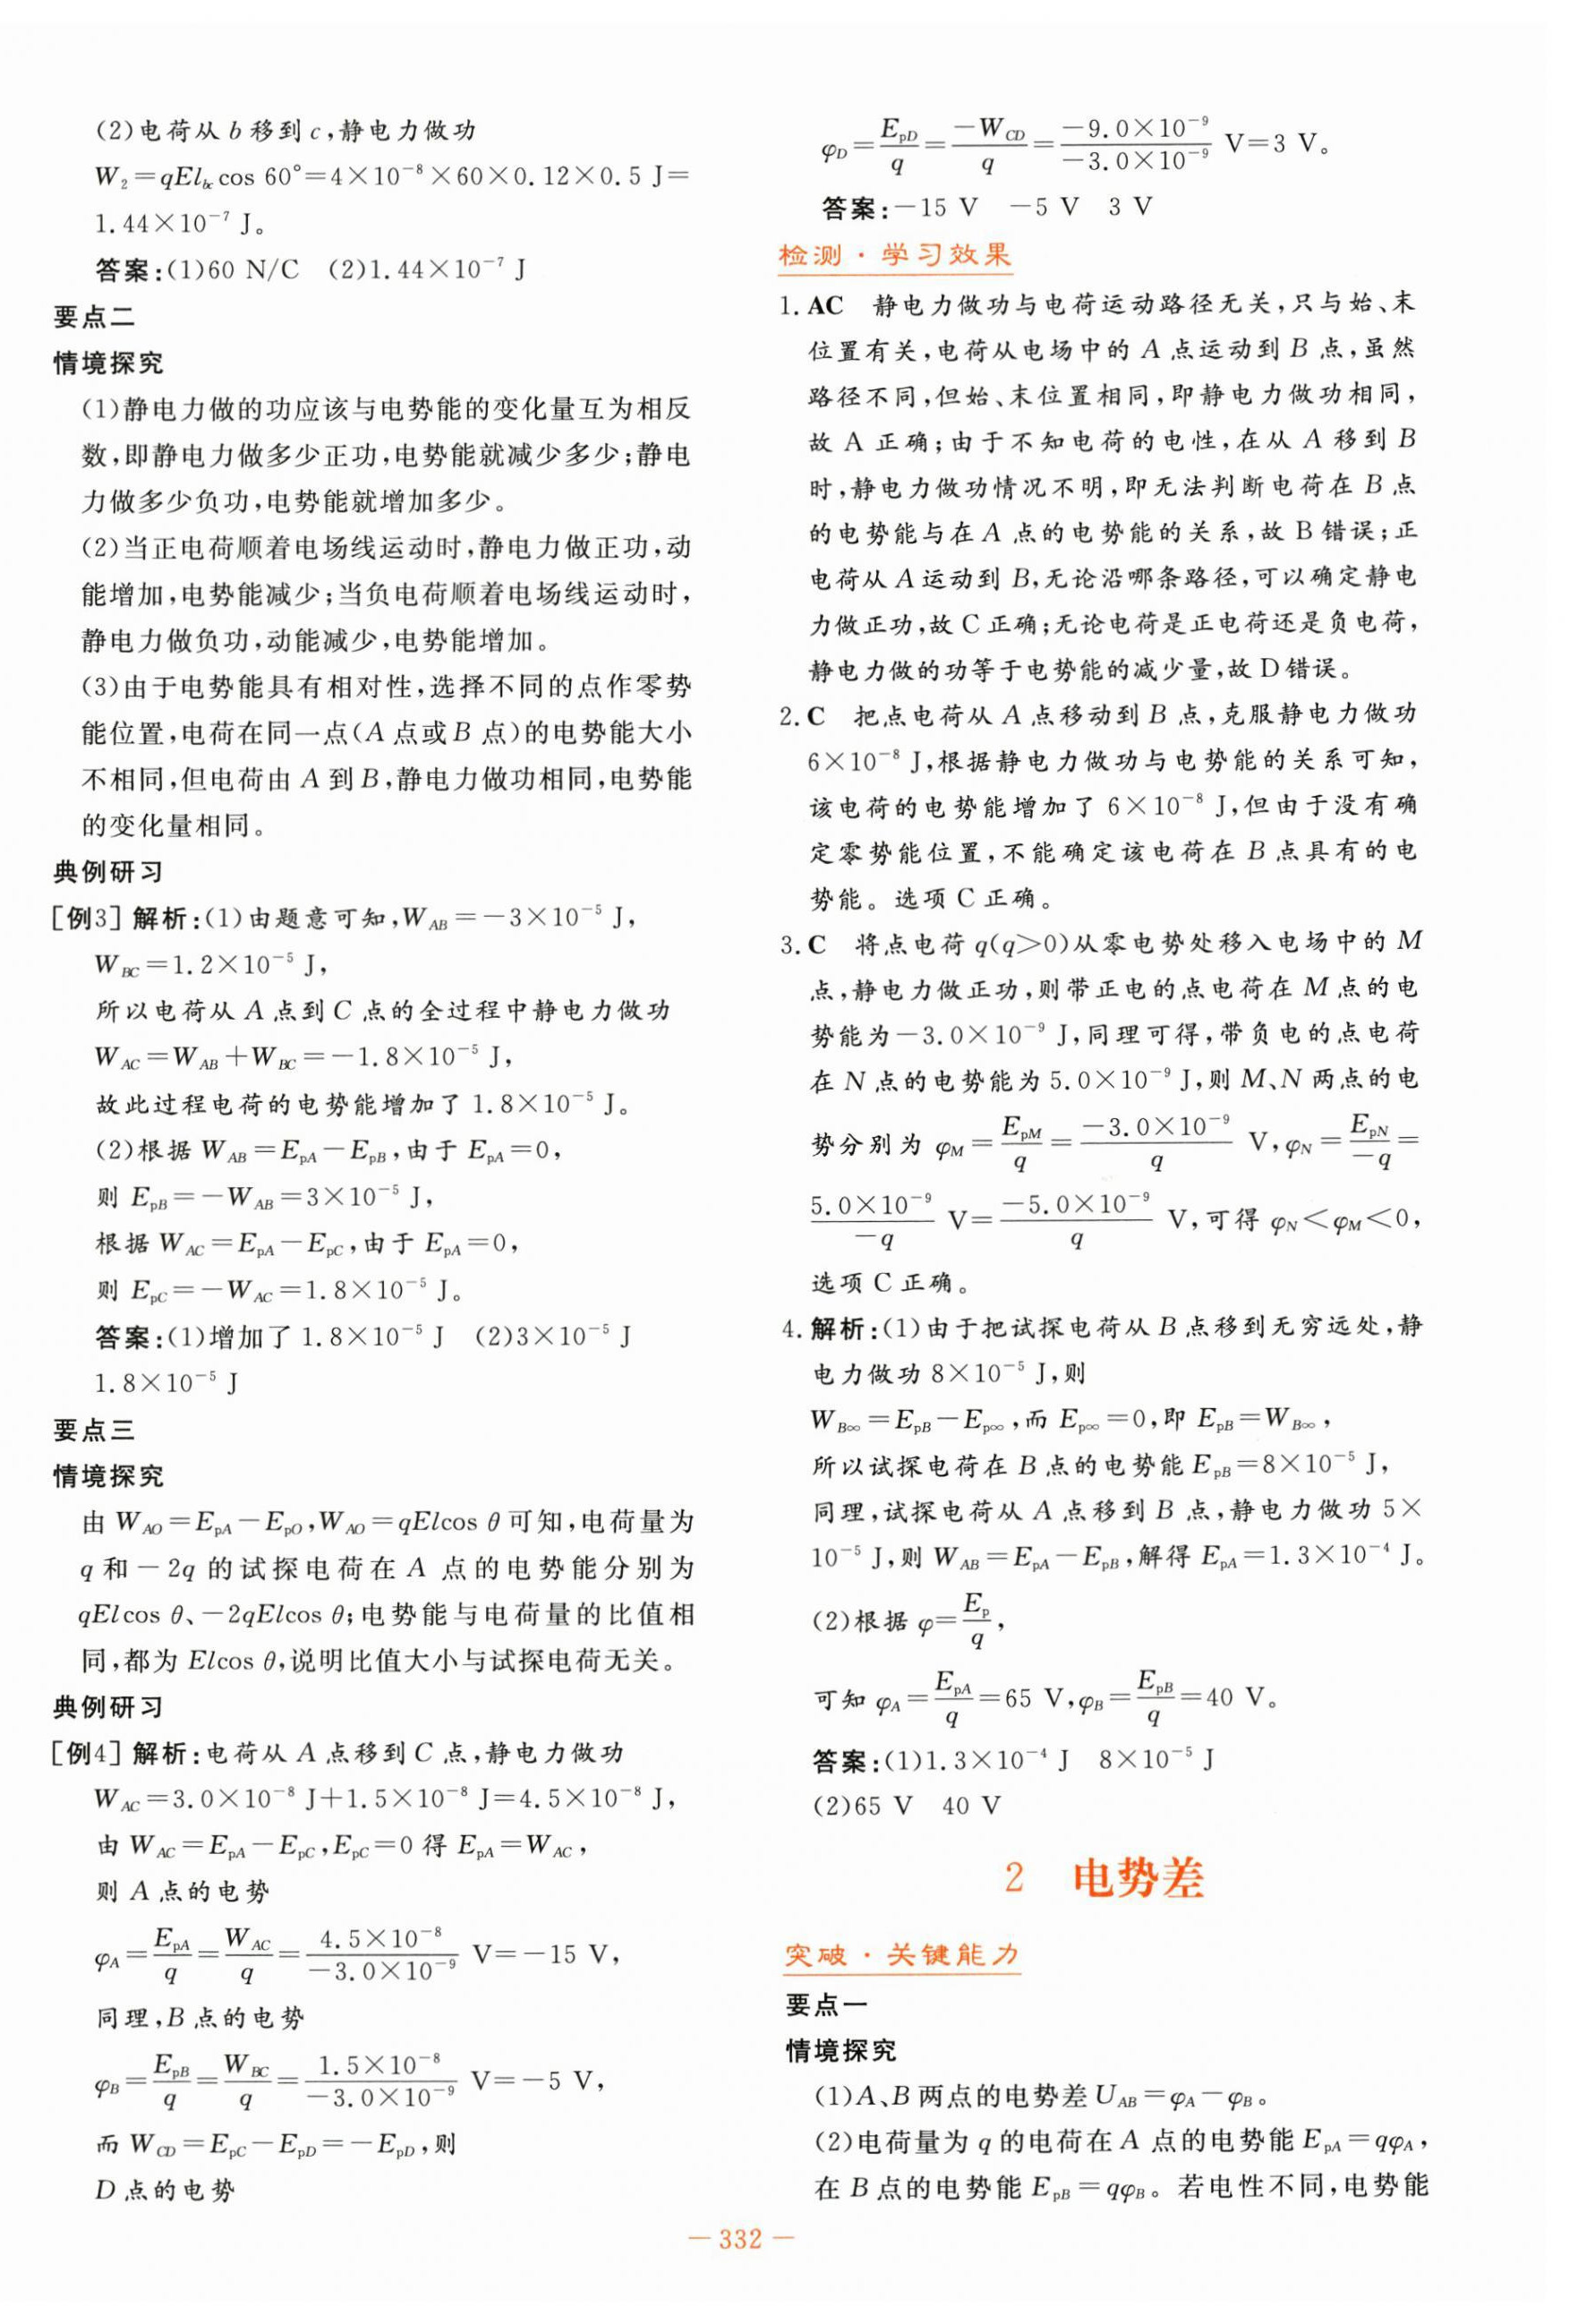 (2)电荷从 b 移到 c,静电力做功
W₂=qElbc cos 60°=4×10⁻⁸×60×0.12×0.5 J=
1.44×10⁻⁷ J。
答案:(1)60 N/C (2)1.44×10⁻⁷ J
要点二
情境探究
(1)静电力做的功应该与电势能的变化量互为相反
数,即静电力做多少正功,电势能就减少多少;静电
力做多少负功,电势能就增加多少。
(2)当正电荷顺着电场线运动时,静电力做正功,动
能增加,电势能减少;当负电荷顺着电场线运动时,
静电力做负功,动能减少,电势能增加。
(3)由于电势能具有相对性,选择不同的点作零势
能位置,电荷在同一点(A 点或 B 点)的电势能大小
不相同,但电荷由 A 到 B,静电力做功相同,电势能
的变化量相同。
典例研习
[例3] 解析:(1)由题意可知,W_AB=-3×10⁻⁵ J,
W_BC=1.2×10⁻⁵ J,
所以电荷从 A 点到 C 点的全过程中静电力做功
W_AC=W_AB+W_BC=-1.8×10⁻⁵ J,
故此过程电荷的电势能增加了 1.8×10⁻⁵ J。
(2)根据 W_AB=E_pA-E_pB,由于 E_pA=0,
则 E_pB=-W_AB=3×10⁻⁵ J,
根据 W_AC=E_pA-E_pC,由于 E_pA=0,
则 E_pC=-W_AC=1.8×10⁻⁵ J。
答案:(1)增加了 1.8×10⁻⁵ J (2)3×10⁻⁵ J
1.8×10⁻⁵ J
要点三
情境探究
由 W_AO=E_pA-E_pO,W_AO=qElcos θ 可知,电荷量为
q 和-2q 的试探电荷在 A 点的电势能分别为
qElcos θ、-2qElcos θ;电势能与电荷量的比值相
同,都为 Elcos θ,说明比值大小与试探电荷无关。
典例研习
[例4] 解析:电荷从 A 点移到 C 点,静电力做功
W_AC=3.0×10⁻⁸ J+1.5×10⁻⁸ J=4.5×10⁻⁸ J,
由 W_AC=E_pA-E_pC,E_pC=0 得 E_pA=W_AC,
则 A 点的电势
φ_A=E_pA/q=W_AC/q=4.5×10⁻⁸/-3.0×10⁻⁹ V=-15 V,
同理,B 点的电势
φ_B=E_pB/q=W_BC/q=1.5×10⁻⁸/-3.0×10⁻⁹ V=-5 V,
而 W_CD=E_pC-E_pD=-E_pD,则
D 点的电势
φ_D=E_pD/q=-W_CD/q=-9.0×10⁻⁹/-3.0×10⁻⁹ V=3 V。
答案:-15 V -5 V 3 V
检测·学习效果
1.AC 静电力做功与电荷运动路径无关,只与始、末
位置有关,电荷从电场中的 A 点运动到 B 点,虽然
路径不同,但始、末位置相同,即静电力做功相同,
故 A 正确;由于不知电荷的电性,在从 A 移到 B
时,静电力做功情况不明,即无法判断电荷在 B 点
的电势能与在 A 点的电势能的关系,故 B 错误;正
电荷从 A 运动到 B,无论沿哪条路径,可以确定静电
力做正功,故 C 正确;无论电荷是正电荷还是负电荷,
静电力做的功等于电势能的减少量,故 D 错误。
2.C 把点电荷从 A 点移动到 B 点,克服静电力做功
6×10⁻⁸ J,根据静电力做功与电势能的关系可知,
该电荷的电势能增加了 6×10⁻⁸ J,但由于没有确
定零势能位置,不能确定该电荷在 B 点具有的电
势能。选项 C 正确。
3.C 将点电荷 q(q>0)从零电势处移入电场中的 M
点,静电力做正功,则带正电的点电荷在 M 点的电
势能为-3.0×10⁻⁹ J,同理可得,带负电的点电荷
在 N 点的电势能为 5.0×10⁻⁹ J,则 M、N 两点的电
势分别为 φ_M=E_pM/q=-3.0×10⁻⁹/q V,φ_N=E_pN/-q=
5.0×10⁻⁹/-q V=-5.0×10⁻⁹/q V,可得 φ_N<φ_M<0,
选项 C 正确。
4.解析:(1)由于把试探电荷从 B 点移到无穷远处,静
电力做功 8×10⁻⁵ J,则
W_B∞=E_pB-E_p∞,而 E_p∞=0,即 E_pB=W_B∞,
所以试探电荷在 B 点的电势能 E_pB=8×10⁻⁵ J,
同理,试探电荷从 A 点移到 B 点,静电力做功 5×
10⁻⁵ J,则 W_AB=E_pA-E_pB,解得 E_pA=1.3×10⁻⁴ J。
(2)根据 φ=E_p/q,
可知 φ_A=E_pA/q=65 V,φ_B=E_pB/q=40 V。
答案:(1)1.3×10⁻⁴ J 8×10⁻⁵ J
(2)65 V 40 V
2 电势差
突破·关键能力
要点一
情境探究
(1)A、B 两点的电势差 U_AB=φ_A-φ_B。
(2)电荷量为 q 的电荷在 A 点的电势能 E_pA=qφ_A,
在 B 点的电势能 E_pB=qφ_B。若电性不同,电势能
— 332 —